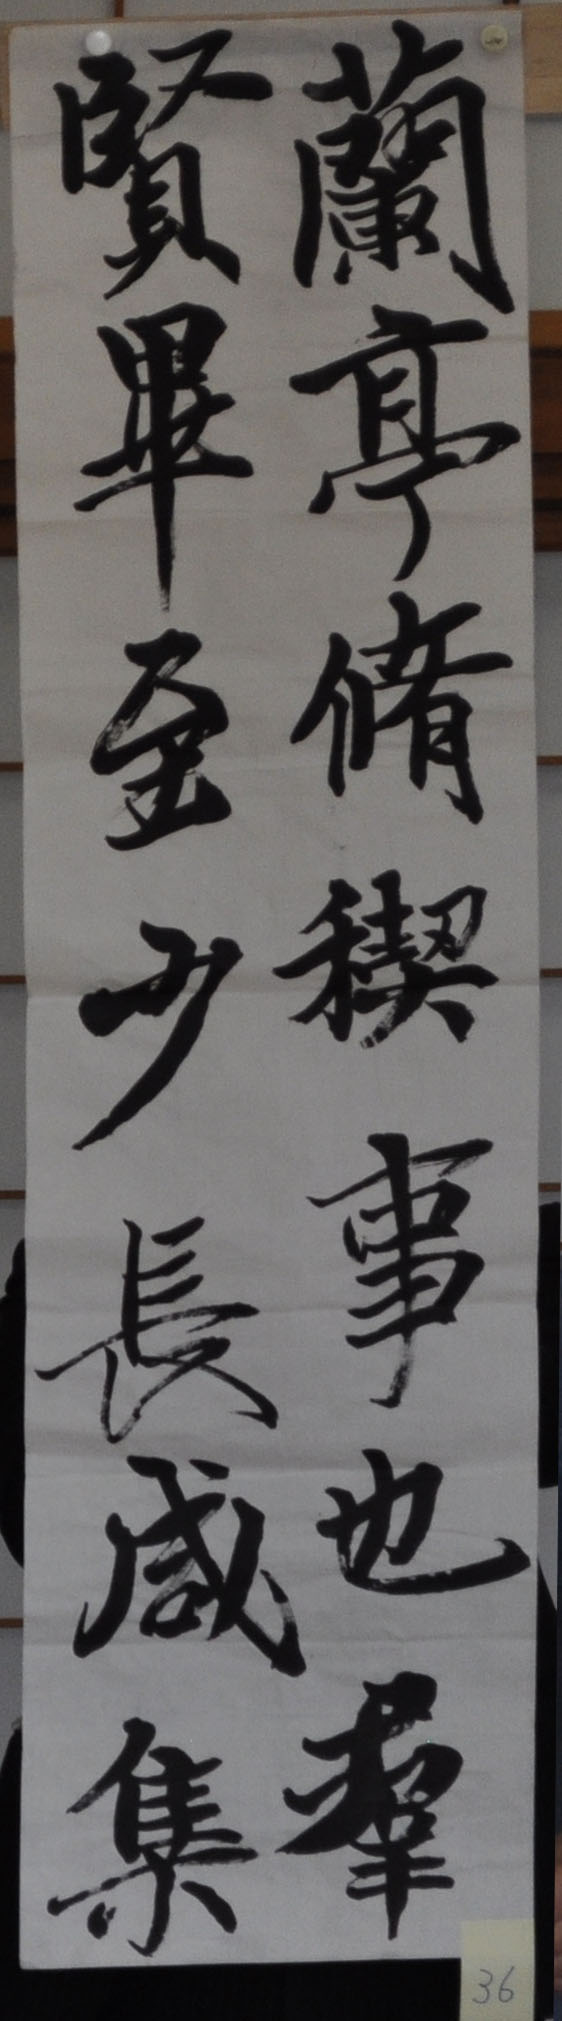 蘭亭脩稧事也羣
賢畢至少長咸集
36